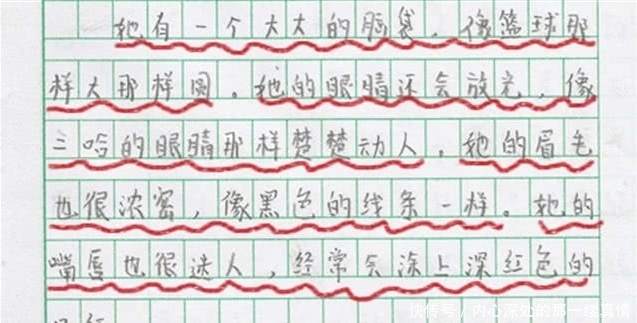 她有一个大大的脑袋，像篮球那
样大那样圆。她的眼睛还会放光，像
二哈的眼睛那样楚楚动人，她的眉毛
也很浓密，像黑色的线条一样。她的
嘴唇也很迷人，经常会涂上深红色的
口红
快传号/内心深处的那一缕真情